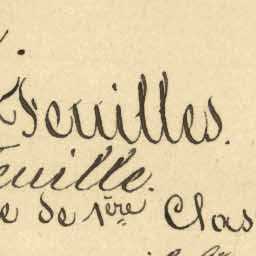 Feuilles.
euille.
e de 1ère Clas